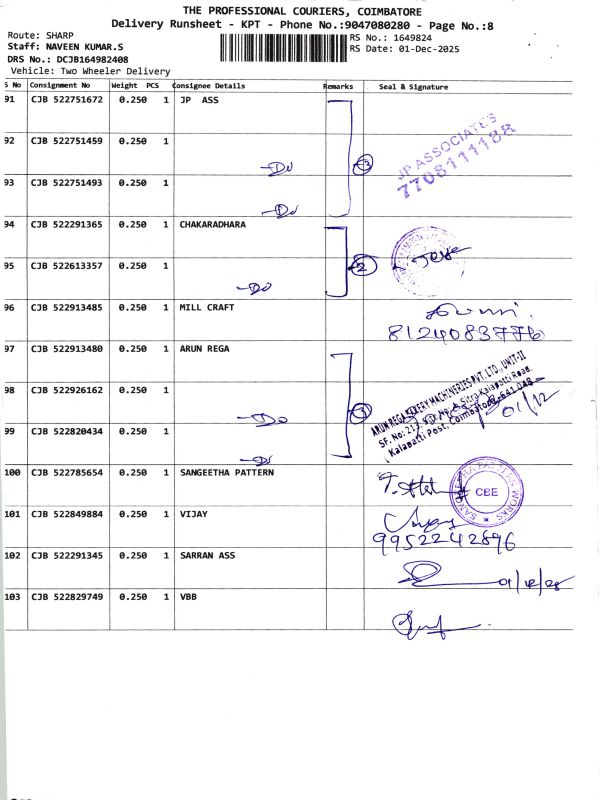 THE PROFESSIONAL COURIERS, COIMBATORE
Delivery Runsheet - KPT - Phone No.:9047080280 - Page No.:8
Route: SHARP
Staff: NAVEEN KUMAR.S
DRS No.: DCJB164982408
Vehicle: Two Wheeler Delivery
RS No.: 1649824
RS Date: 01-Dec-2025
S No Consignment No Weight PCS Consignee Details Remarks Seal & Signature
91 CJB 522751672 0.250 1 JP ASS
92 CJB 522751459 0.250 1
Do
93 CJB 522751493 0.250 1
Do
3
JP ASSOCIATES
7708111188
94 CJB 522291365 0.250 1 CHAKARADHARA
95 CJB 522613357 0.250 1
Do
2
96 CJB 522913485 0.250 1 MILL CRAFT
8124083776
97 CJB 522913480 0.250 1 ARUN REGA
98 CJB 522926162 0.250 1
Do
99 CJB 522820434 0.250 1
Do
3
ARUN REGA BAKERY MACHINERIES PVT. LTD., UNIT-II
Kalapatti Post, Coimbatore-641 048
01/12
100 CJB 522785654 0.250 1 SANGEETHA PATTERN
SANGEETHA PATTERN WORKS
CBE
101 CJB 522849884 0.250 1 VIJAY
9952242896
102 CJB 522291345 0.250 1 SARRAN ASS
103 CJB 522829749 0.250 1 VBB